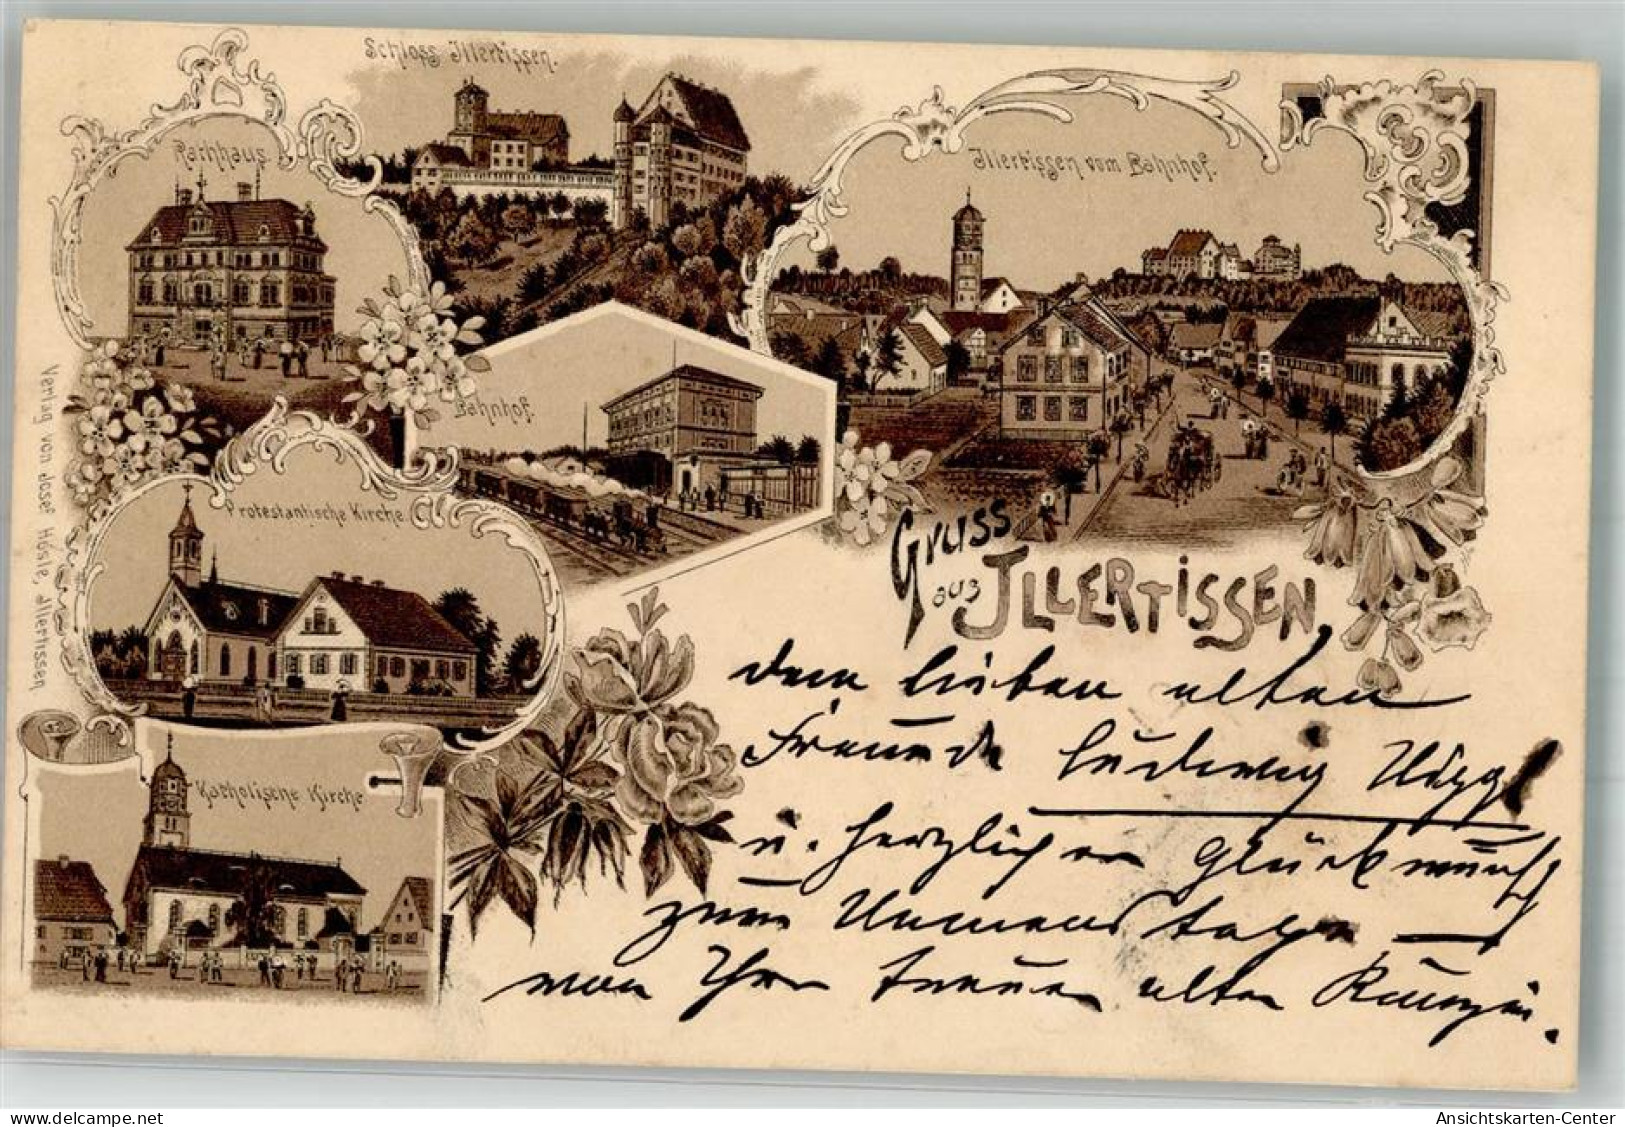 Schloss Illertissen.
Rathhaus.
Illertissen vom Bahnhof.
Bahnhof.
Protestantische Kirche
Katholische Kirche
Verlag von Josef Hösle, Illertissen
Gruss
aus Illertissen
dem lieben alten
Freunde Ludwig
u. herzlichen Glückwunsch
zum Namenstage
von Ihrer treuen alten
Ansichtskarten-Center
www.delcampe.net